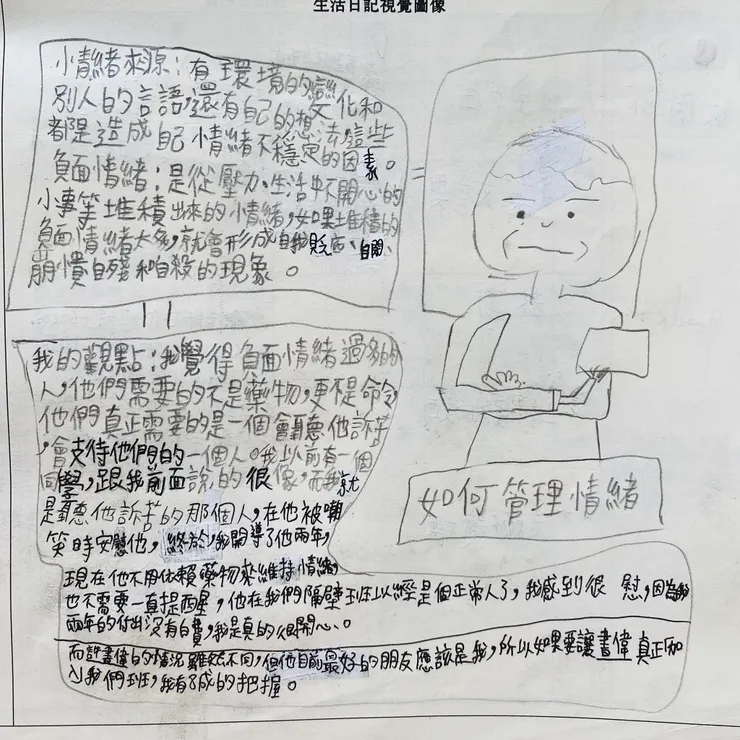 生活日記視覺圖像
情緒來源：有環境的變
別人的言語還有自己的想 文化和
都是造成自己情緒不穩定的因素。 法，這些
負面情緒：是從壓力、生活中不開心的
小事等堆積出來的情緒，如果堆積的
負面情緒太多，就會形成自我貶
崩潰自殘和自殺的現象。
我的觀點：我覺得負面情緒過多的
人，他們需要的不是藥物，更不是命令，
他們真正需要的是一個會聽他訴苦
，會支待他們的一個人。我以前有一個
同學，跟我前面說的很像，而我就
是聽他訴苦的那個人，在他被嘲
笑時安慰他，終於，我開導了他兩年，
現在他不用依賴藥物來維持情緒
也不需要一直提醒，他在我們隔壁班以經是個正常人了，我感到很 慰，因為我
兩年的付出沒有白費，我是真的很開心。
而許書偉的情況雖然不同，但他目前最好的朋友應該是我，所以如果要讓書偉真正加
入我們班，我有了成的把握。
如何管理情緒